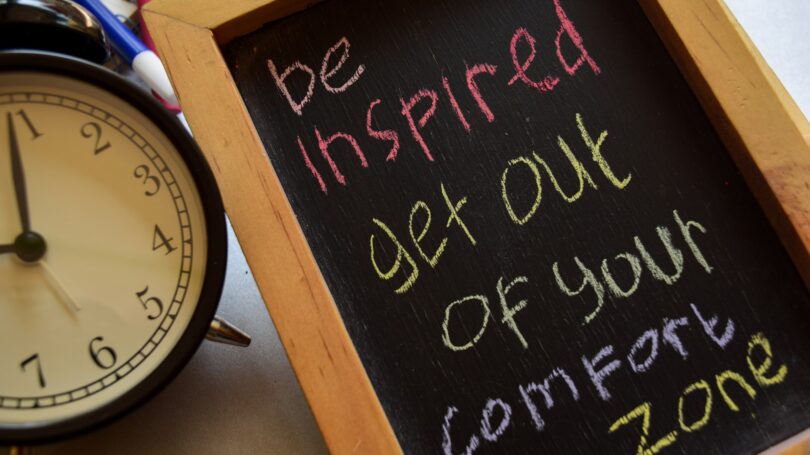 be
Inspired
get out
of your
comfort
zone
1
2
3
4
5
6
7